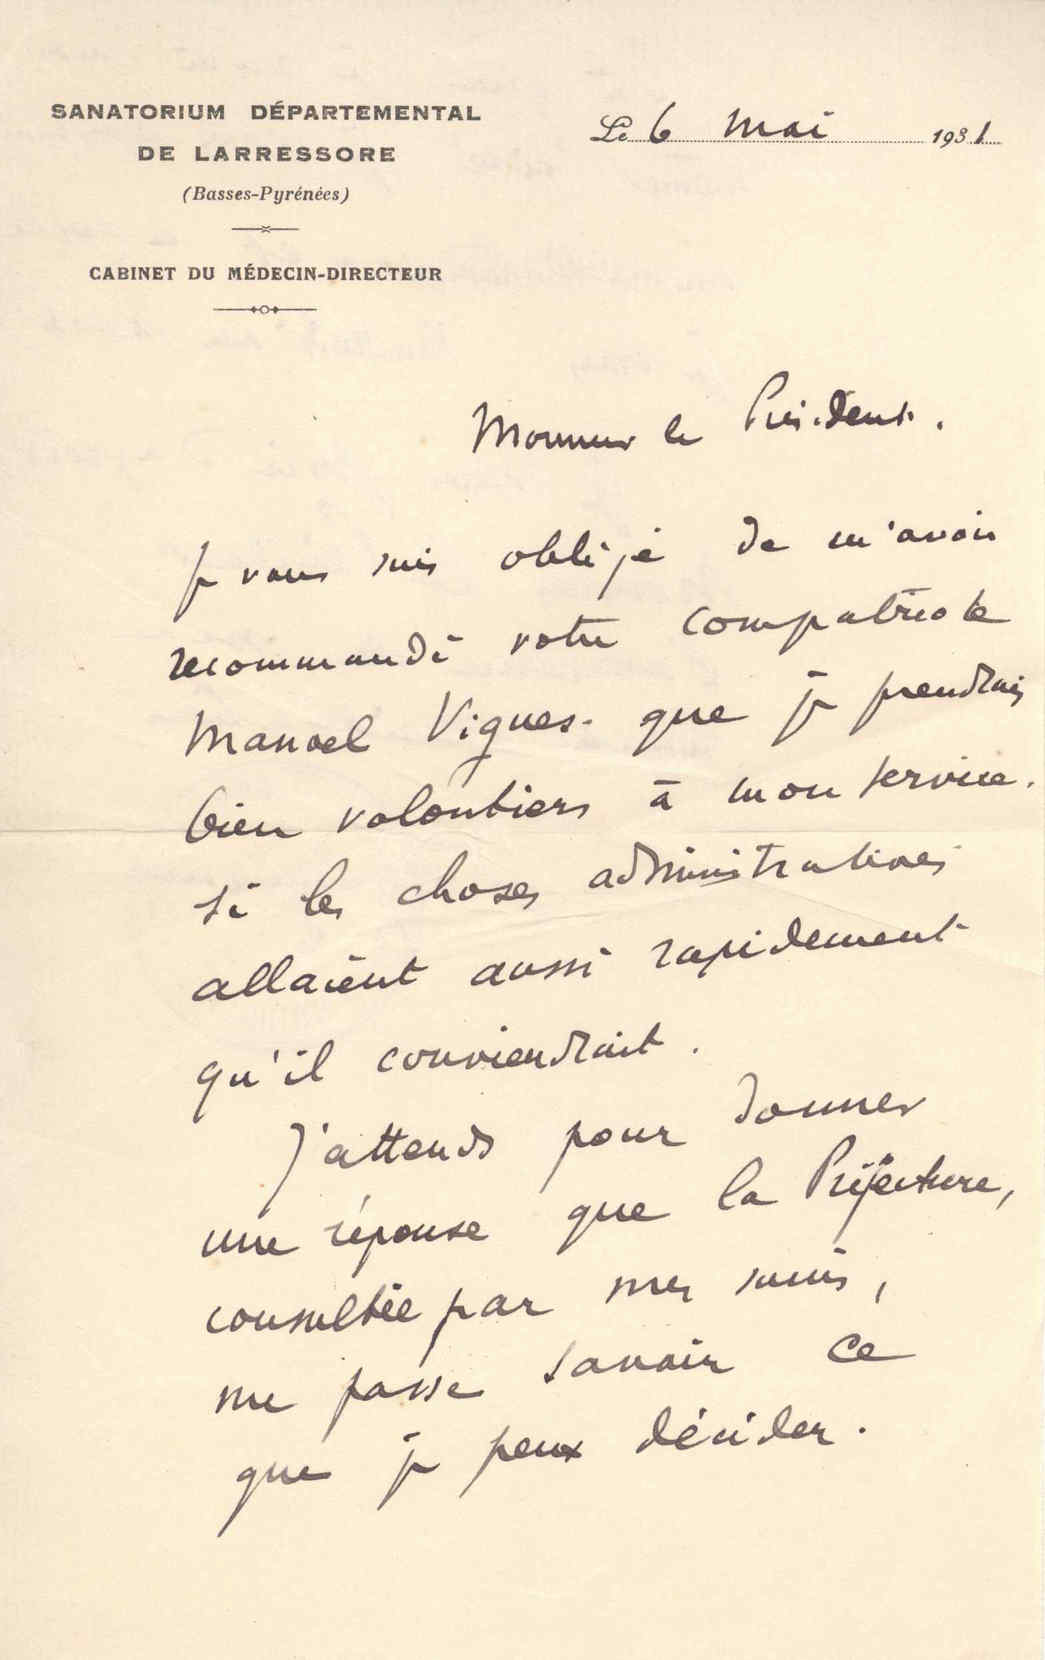 SANATORIUM DÉPARTEMENTAL
DE LARRESSORE
(Basses-Pyrénées)
CABINET DU MÉDECIN-DIRECTEUR
Le 6 Mai 1931
Monsieur le Président.
Je vous suis obligé de m'avoir
recommandé votre compatriote
Manoel Vigues. que je prendrais
bien volontiers à mon service.
si les choses administratives
allaient aussi rapidement
qu'il conviendrait.
J'attends pour donner
une réponse que la Préfecture,
consultée par mes soins,
me fasse savoir ce
que je peux décider.